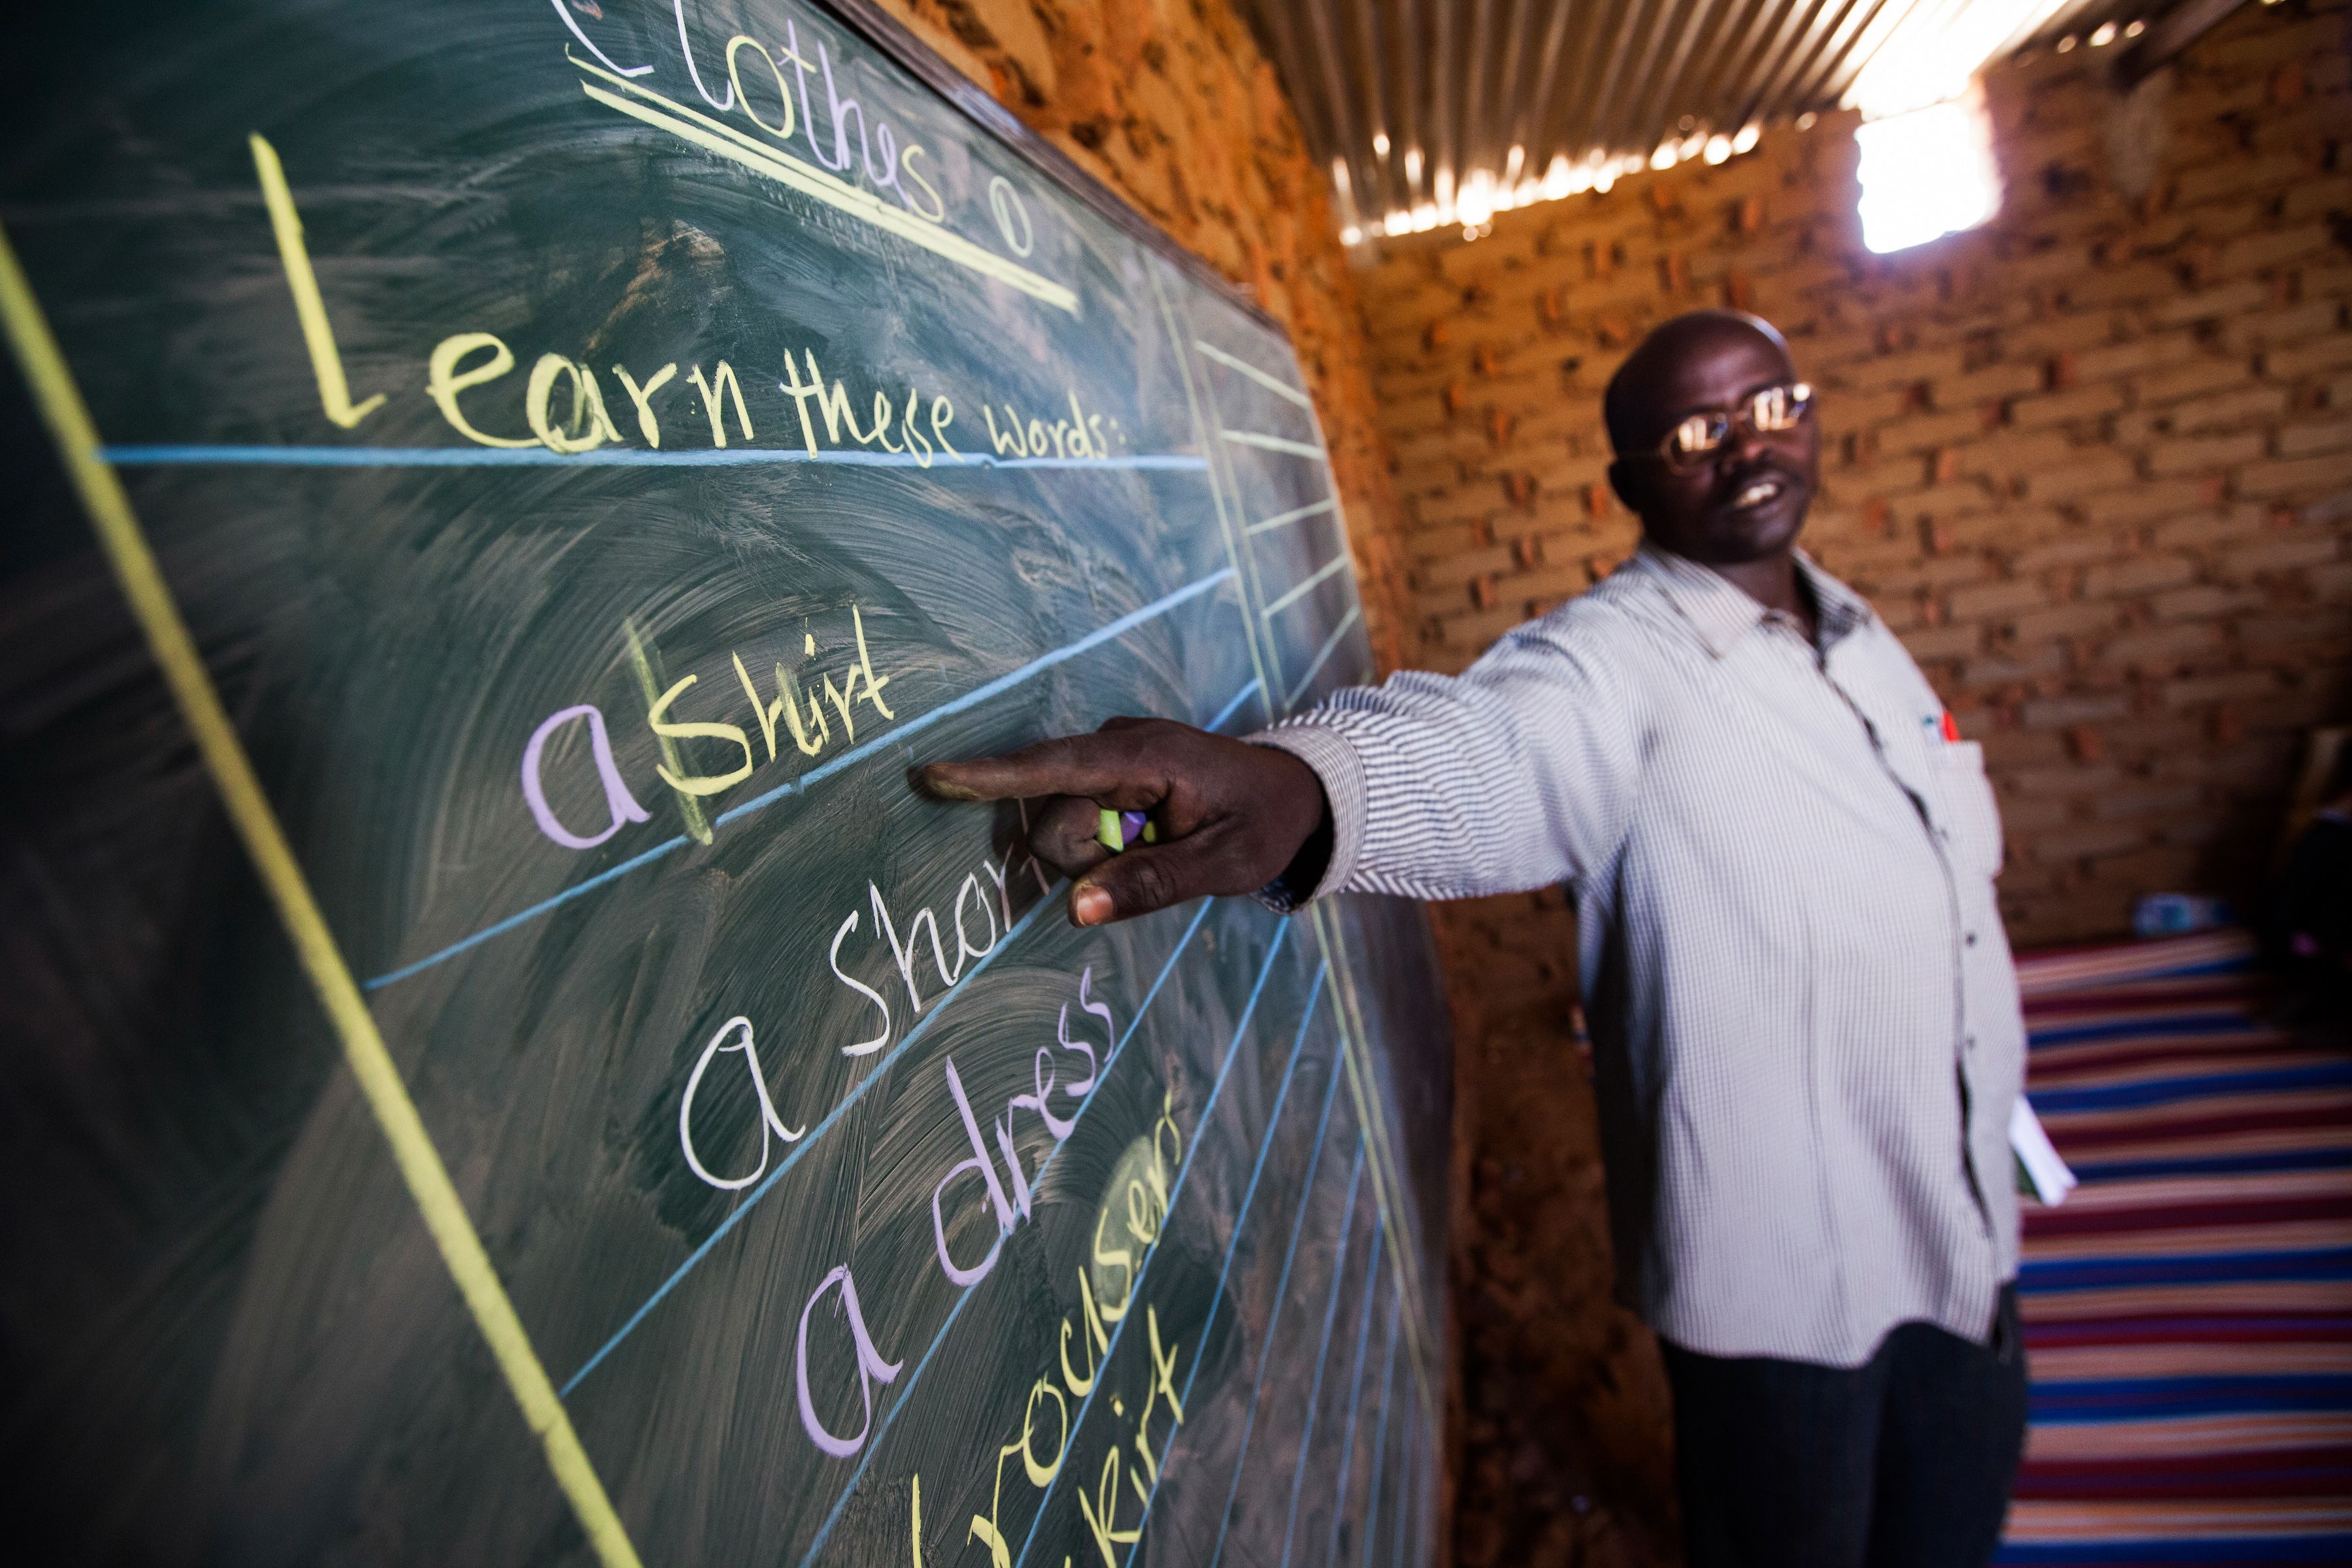 Clothes
Learn these words:
a shirt
a shor
a dress
trousers
kirt